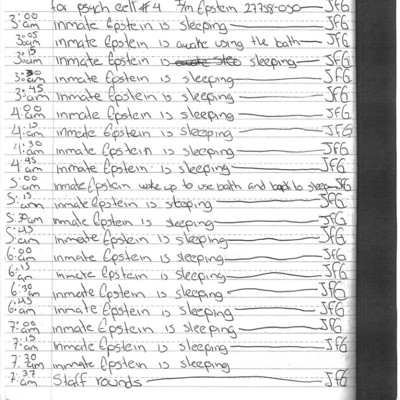 for psych cell #4 I/m Epstein 27758-050 JFG
3:00 am inmate Epstein is sleeping JFG
3:05 am inmate Epstein is awake using the bath JFG
3:15 am inmate Epstein is sleeping JFG
3:30 am inmate Epstein is sleeping JFG
3:45 am inmate Epstein is sleeping JFG
4:00 am inmate Epstein is sleeping JFG
4:15 am inmate Epstein is sleeping JFG
4:30 am inmate Epstein is sleeping JFG
4:45 am inmate Epstein is sleeping JFG
5:00 am inmate Epstein woke up to use bath and back to sleep JFG
5:15 am inmate Epstein is sleeping JFG
5:30 am inmate Epstein is sleeping JFG
5:45 am inmate Epstein is sleeping JFG
6:00 am inmate Epstein is sleeping JFG
6:15 am inmate Epstein is sleeping JFG
6:30 am inmate Epstein is sleeping JFG
6:45 am inmate Epstein is sleeping JFG
7:00 am inmate Epstein is sleeping JFG
7:15 am inmate Epstein is sleeping JFG
7:30 am inmate Epstein is sleeping
7:37 am Staff rounds JFG